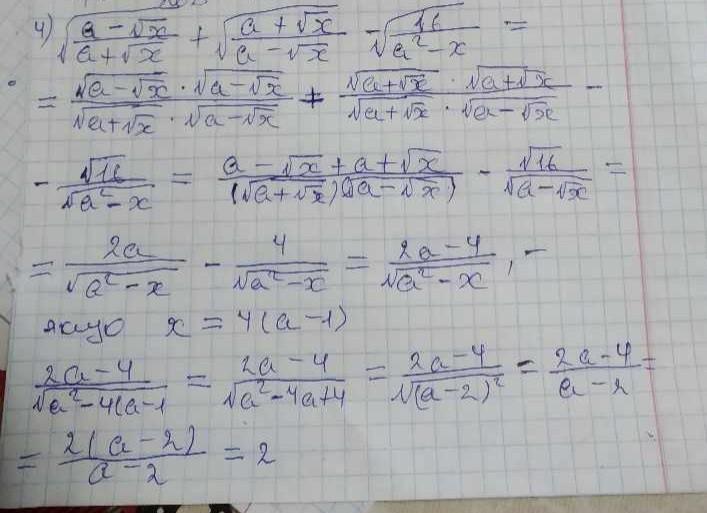 4) √((a − √x)/(a + √x)) + √((a + √x)/(a − √x)) − √(16/(a² − x)) =
= (√(a − √x) · √(a − √x))/(√(a + √x) · √(a − √x)) + (√(a + √x) · √(a + √x))/(√(a + √x) · √(a − √x)) −
− √16/√(a² − x) = (a − √x + a + √x)/((√(a + √x))(√(a − √x))) − √16/√(a − √x) =
= 2a/√(a² − x) − 4/√(a² − x) = (2a − 4)/√(a² − x), −
якщо x = 4(a − 1)
(2a − 4)/√(a² − 4(a − 1 = (2a − 4)/√(a² − 4a + 4) = (2a − 4)/√((a − 2)²) = (2a − 4)/(a − 2) =
= 2(a − 2)/(a − 2) = 2